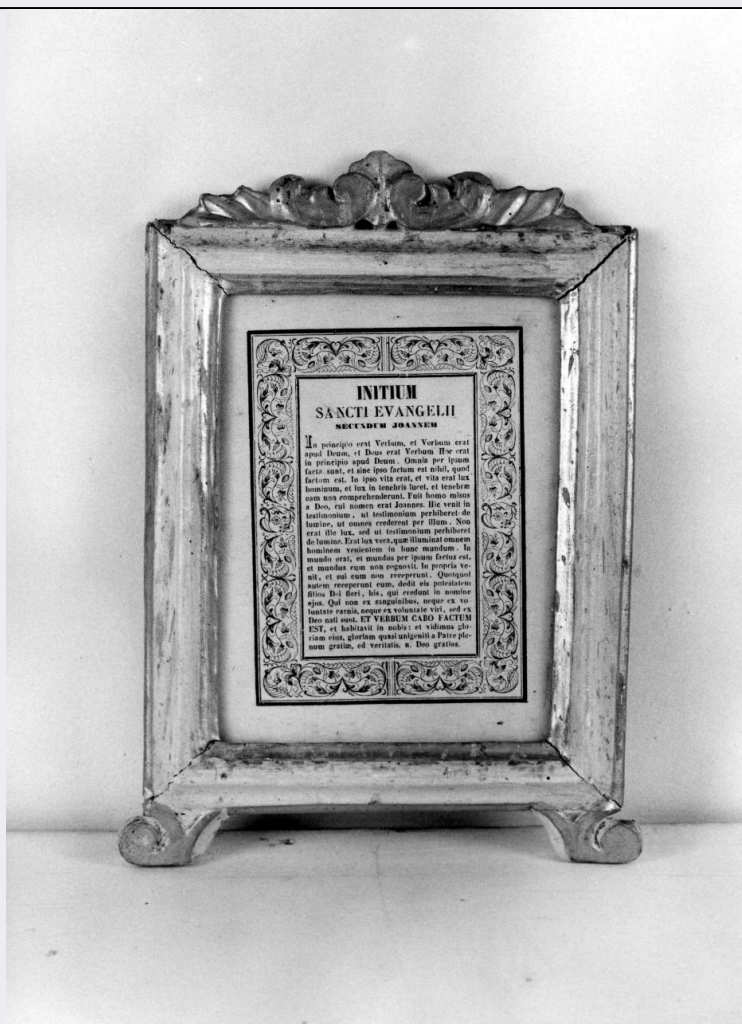 INITIUM
SANCTI EVANGELII
SECUNDUM JOANNEM
In principio erat Verbum, et Verbum erat
apud Deum, et Deus erat Verbum Hoc erat
in principio apud Deum. Omnia per ipsum
facta sunt, et sine ipso factum est nihil, quod
factum est. In ipso vita erat, et vita erat lux
hominum, et lux in tenebris lucet, et tenebræ
eam non comprehenderunt. Fuit homo misus
a Deo, cui nomen erat Joannes. Hic venit in
testimonium, ut testimonium perhiberet de
lumine, ut omnes crederent per illum. Non
erat ille lux, sed ut testimonium perhiberet
de lumine. Erat lux vera, quæ illuminat omnem
hominem venientem in hunc mundum. In
mundo erat, et mundus per ipsum factus est,
et mundus eum non cognovit. In propria ve-
nit, et sui eum non receperunt. Quotquot
autem receperunt eum, dedit eis potestatem
filios Dei fieri, his, qui credunt in nomine
ejus. Qui non ex sanguinibus, neque ex vo-
luntate carnis, neque ex voluntate viri, sed ex
Deo nati sunt. ET VERBUM CARO FACTUM
EST, et habitavit in nobis: et vidimus glo-
riam eius, gloriam quasi unigeniti a Patre ple-
num gratiæ, ed veritatis. R. Deo gratias.